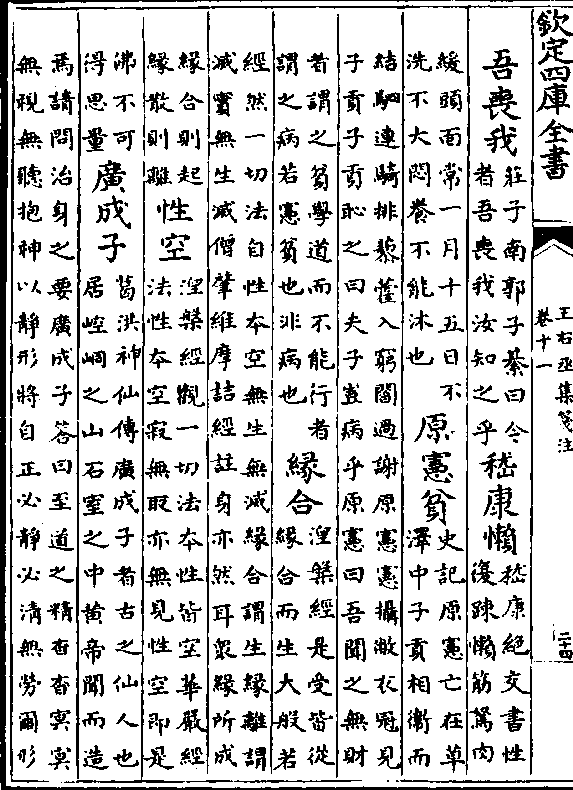 欽定四庫全書
王右丞集箋注
卷十一
二十四
吾喪我
莊子南郭子綦曰今
者吾喪我汝知之乎
嵇康懶
嵇康絶交書性
復疎懶筋駑肉
緩頭面常一月十五日不
洗不大悶養不能沐也
原憲貧
史記原憲亡在草
澤中子貢相衛而
結駟連騎排藜藿入窮閻過謝原憲憲攝敝衣冠見
子貢子貢恥之曰夫子豈病乎原憲曰吾聞之無財
者謂之貧學道而不能行者
謂之病若憲貧也非病也
縁合
涅槃經是受皆從
縁合而生大般若
經然一切法自性本空無生無滅縁合謂生縁離謂
滅實無生滅僧肇維摩詰經註身亦然耳衆縁所成
縁合則起
縁散則離
性空
涅槃經觀一切法本性皆空華嚴經
法性本空寂無取亦無見性空即是
佛不可
得思量
廣成子
葛洪神仙傳廣成子者古之仙人也
居崆峒之山石室之中黄帝聞而造
焉請問治身之要廣成子答曰至道之精杳杳冥冥
無視無聽抱神以静形將自正必静必清無勞爾形